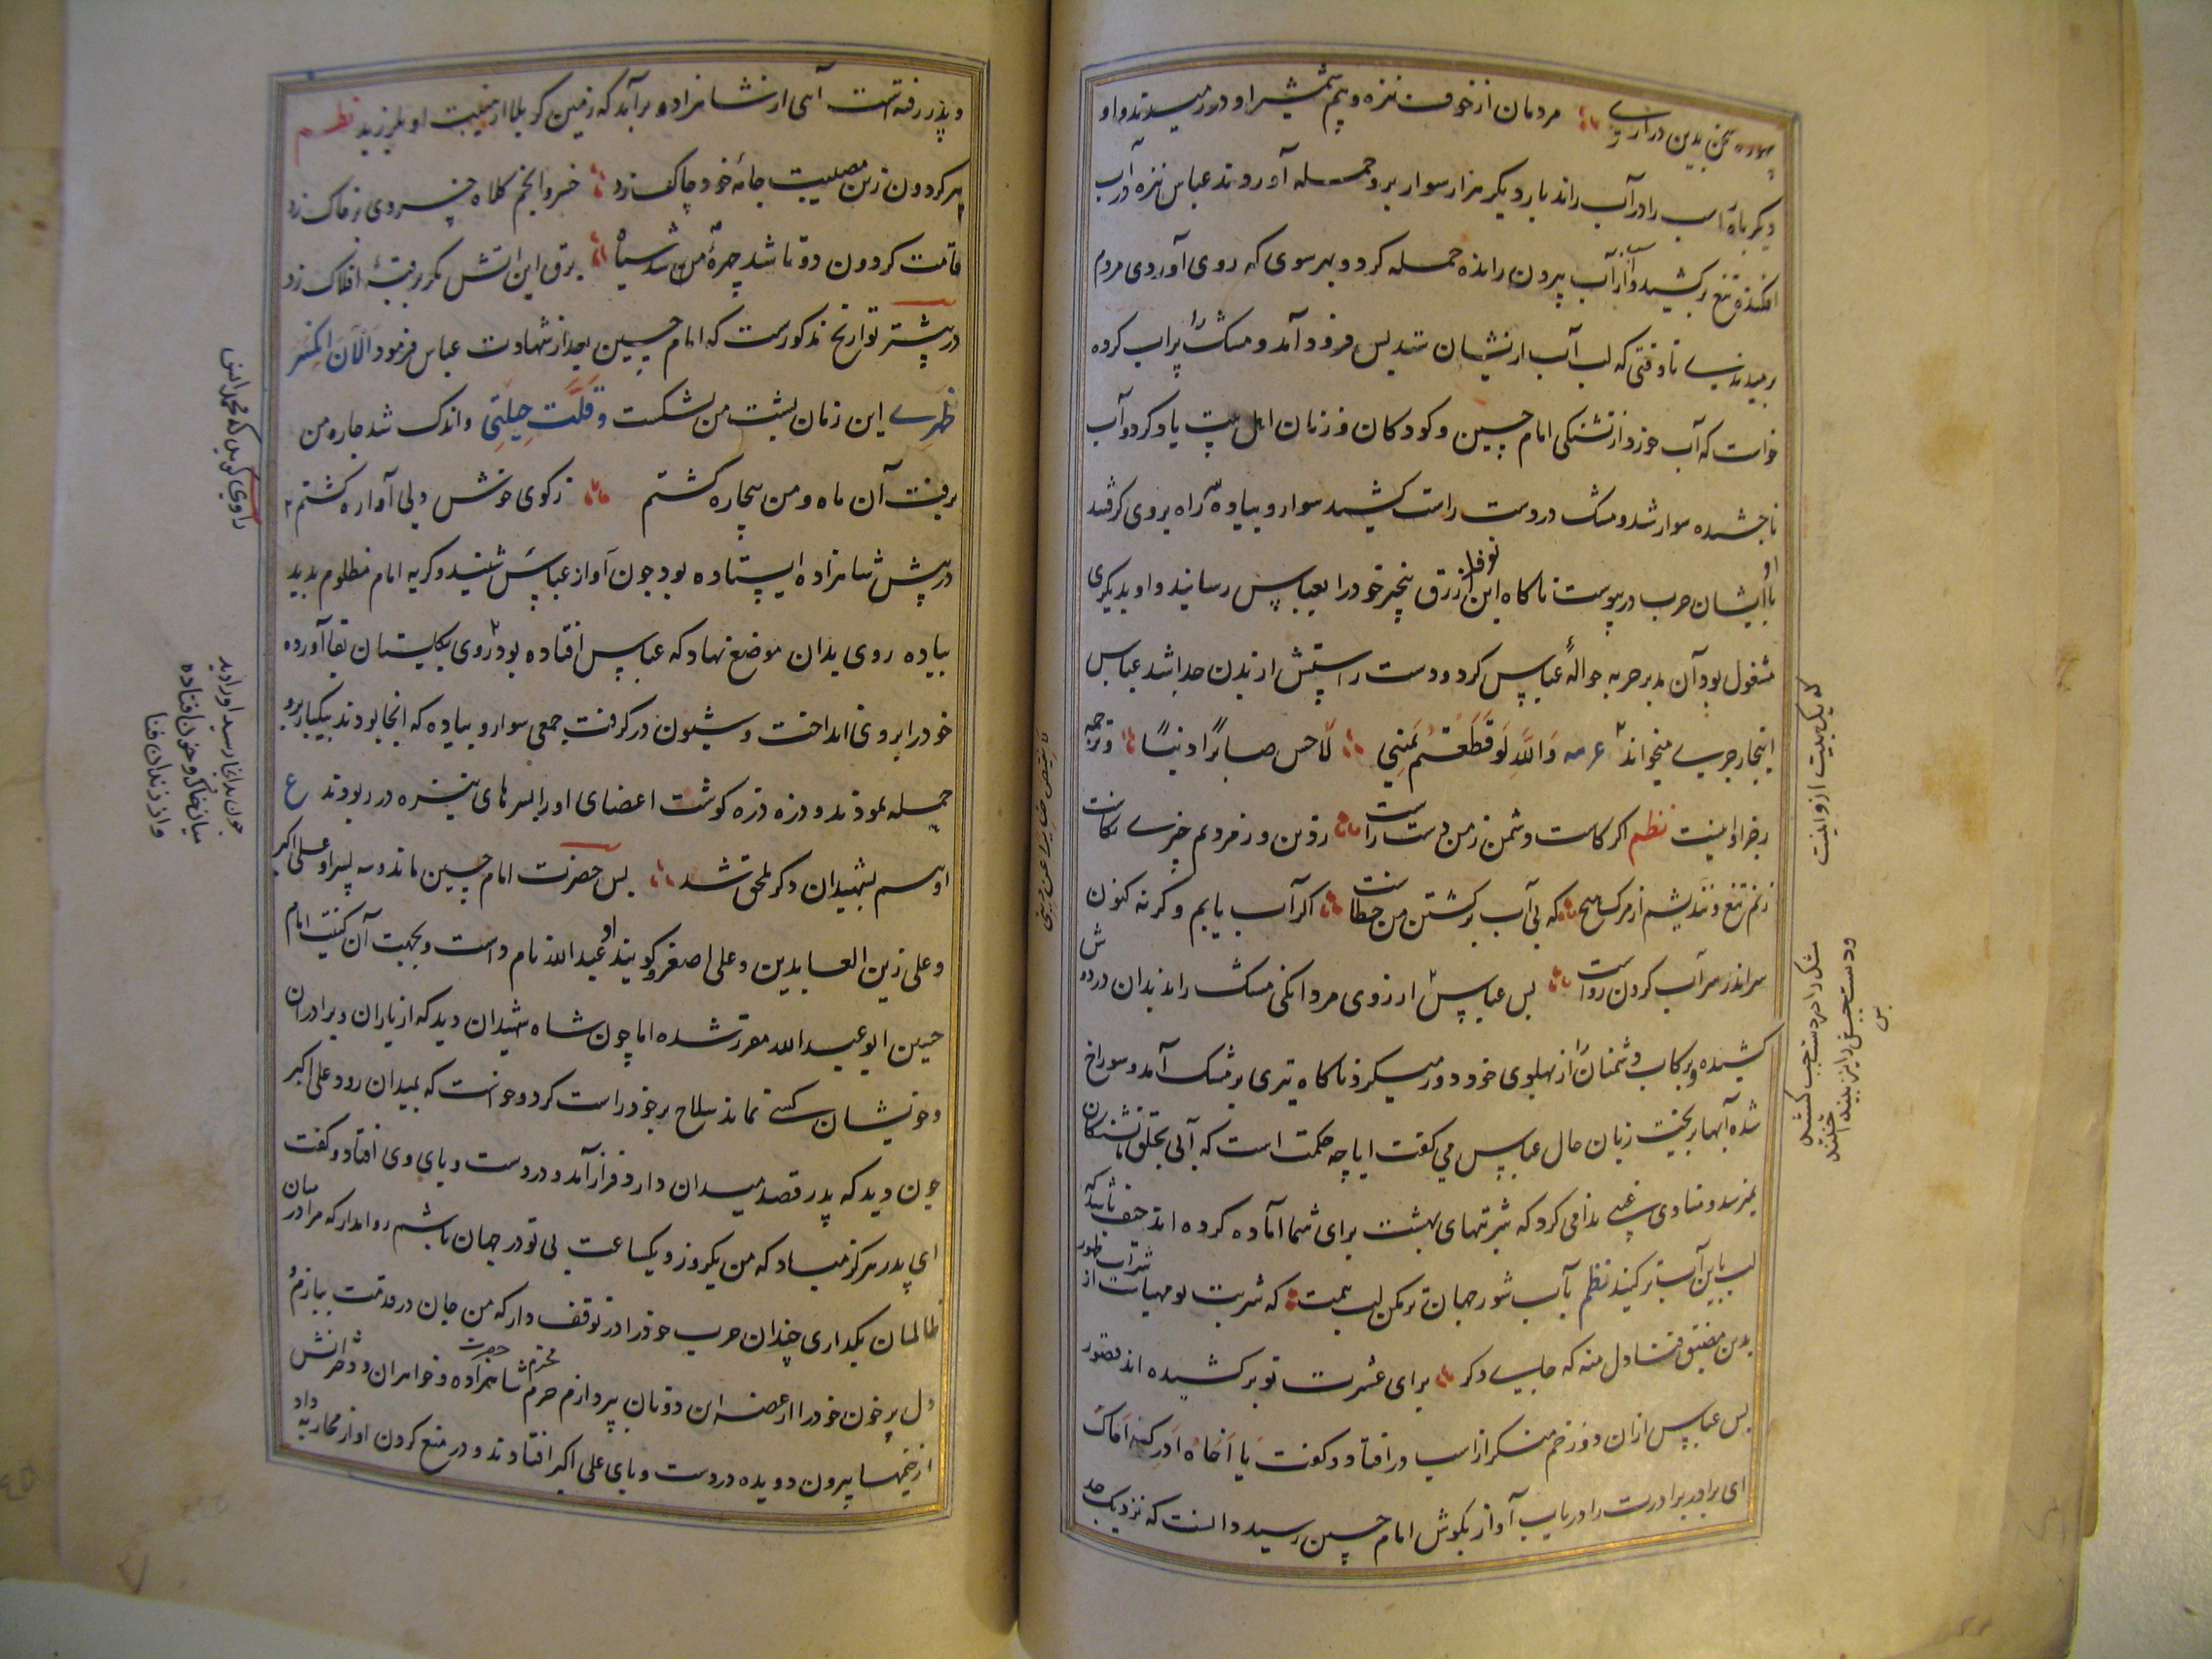 سخن بدین درازی مردمان از خوف نیزه و بیم شمشیر او دور میشدند و او
دیگر باره اسب را در آب راند بار دیگر هزار سوار برو حمله آوردند عباس نیزه در آب
افکنده تیغ برکشید و از آب بیرون رانده حمله کرد و بهر سوی که روی آوردی مردم
برمیدندی تا وقتی که لب آب از ایشان ستد پس فرود آمد و مشک را پر آب کرده
خواست که آب خورد از تشنگی امام حسین و کودکان و زنان اهل بیت یاد کرد و آب
ناچشیده سوار شد و مشک در دست راست کشید سوار و پیاده راه بروی گرفتند
او با ایشان حرب درپیوست ناگاه نوفل این ازرق خود را بعباس رسانید و او بدیگری
مشغول بود آن بدبر حربه حوالهٔ عباس کرد و دست راستش از بدن جدا شد عباس
اینجا رجزی میخواند عربیه والله لو قطعتم یمینی لاحمی صابرا دینا و ترجمه
رجز او اینست نظم اگر کاست دشمن ز من دست راست
زنم تیغ و نندیشم از مرگ هیچ که بی آب برگشتن من خطاست اگر آب یابم وگرنه کنون
سر اندر سر آب کردن رواست پس عباس از روی مردانگی مشک را بدندان در
کشیده و برکاب دشمنان از پهلوی خود دور میکرد ناگاه تیری بر مشک آمد و سوراخ
شده آبها بریخت زبان حال عباس می گفت ایا چه حکمت است که آبی بحلق تشنگان
نمیرسد و منادی غیبی ندا می کرد که شربتهای بهشت برای شما آماده کرده اند حیف باشد که
لب باین آب تر کنید نظم بآب شور جهان تر مکن لب همت که شربت تو مهیاست از شراب طهور
بدین مضیق فنا دل منه که جایی دگر برای عشرت تو برکشیده اند قصور
پس عباس از آن دو زخم منکر از اسب درافتاد و گفت یا اخاه ادرک اخاک
ای برادر برادرت را دریاب آواز بگوش امام حسین رسید دانست که نزدیک جد
لا یک بیت از و اینست
مشک را در دست چپ کشید
و دست چپش را نیز بینداختند
پس
و پدر رفته است آهی از نشاهزاده برآمد که زمین کربلا از هیبت او بلرزید نظم
پیر گردون زین مصیبت جامهٔ خود چاک زد خسرو انجم کلاه خسروی بر خاک زد
قامت گردون دوتا شد چهرهٔ مه شد سیاه برق این آتش مگر بر قبهٔ افلاک زد
در بیشتر تواریخ مذکورست که امام حسین بعد از شهادت عباس فرمود الآن انکسر
ظهری این زمان پشت من بشکست و قلت حیلتی و اندک شد چاره من
برفت آن ماه و من بیچاره گشتم ز کوی خوش دلی آواره گشتم
در پیش شاهزاده ایستاده بود چون آواز عباس شنید و گریه امام مظلوم بدید
پیاده روی بدان موضع نهاد که عباس افتاده بود روی بگلستان بقا آورده
خود را بروی انداخت و شیون درگرفت جمعی سوار و پیاده که آنجا بودند بیکبار برو
حمله نمودند و ذره ذره گوشت اعضای او را بسرهای نیزه در ربودند ع
او هم بشهیدان دگر ملحق شد پس حضرت امام حسین ماند و سه پسر او علی اکبر
و علی زین العابدین و علی اصغر و گویند او عبدالله نام داست و بجهت آن کنیت امام
حسین ابو عبدالله مقرر شده اما چون شاه شهیدان دید که از یاران و برادران
و خویشان کسی نماند سلاح بر خود راست کرد و خواست که بمیدان رود علی اکبر
چون دید که پدر قصد میدان دارد فراز آمد و در دست و پای وی افتاد و گفت
ای پدر هرگز مباد که من یکروز و یکساعت بی تو در جهان باشم روا مدار که مرا در میان
ظالمان بگذاری چندان حرب خود را در توقف دار که من جان در قدمت ببازم
دل پر خون خود را از غصه این دونان بپردازم حرم محترم حضرت شاهزاده و خواهران و دخترانش
از خیمها بیرون دویده در دست و پای علی اکبر افتادند و در منع کردن او از محاربه داد
راوی گوید که محمد انس
چون بدانجا رسید او را دید
میان خاک و خون افتاده
و از زندان فنا